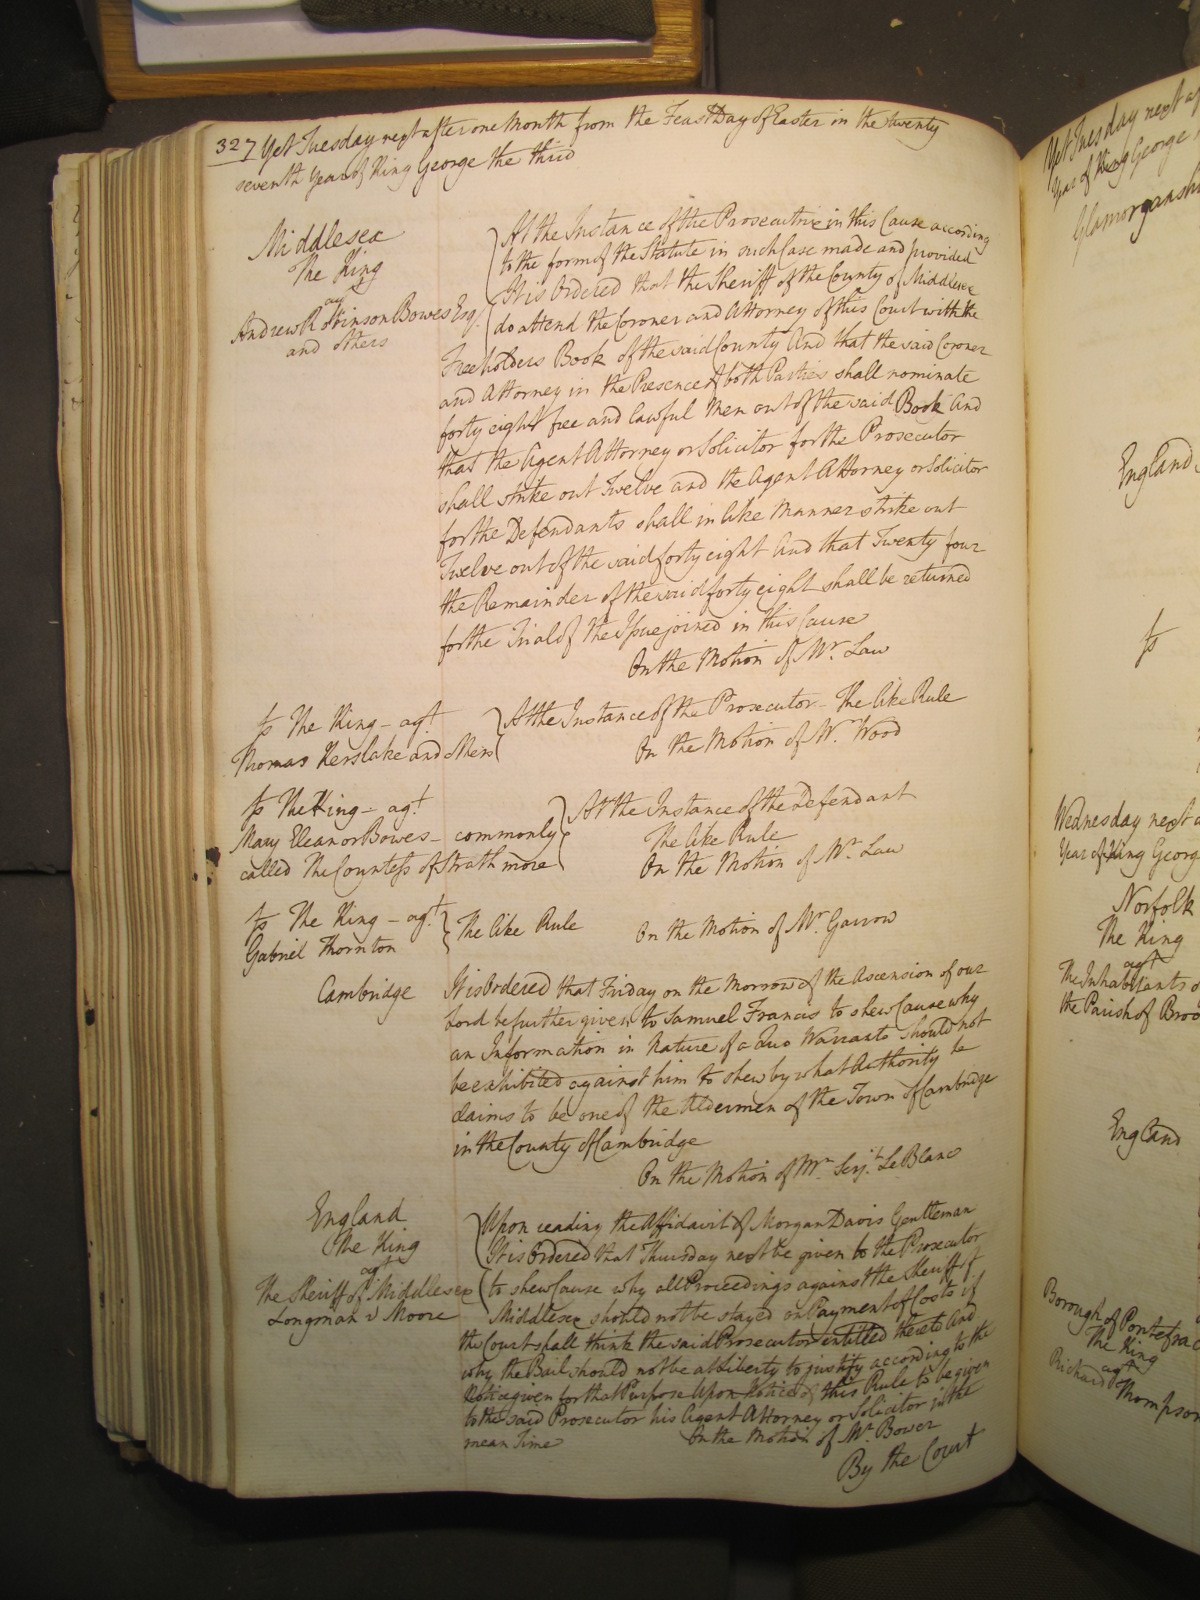 327 Yet Tuesday next after one Month from the Feast Day of Easter in the twenty
seventh Year of King George the third
Middlesex
The King
agt
Andrew Robinson Bowes Esq.
and others
At the Instance of the Prosecutrix in this Cause according
to the form of the Statute in such Case made and provided
It is Ordered that the Sheriff of the County of Middlesex
do attend the Coroner and Attorney of this Court with the
Freeholders Book of the said County And that the said Coroner
and Attorney in the Presence of both Parties shall nominate
forty eight free and lawful Men out of the said Book And
that the Agent Attorney or Solicitor for the Prosecutor
shall strike out Twelve and the Agent Attorney or Solicitor
for the Defendants shall in like Manner strike out
Twelve out of the said forty eight And that Twenty four
the Remainder of the said forty eight shall be returned
for the Trial of the Issue joined in this Cause
On the Motion of Mr. Law
The King - agt.
Thomas Kerslake and others
At the Instance of the Prosecutor - The like Rule
On the Motion of Mr. Wood
The King - agt.
Mary Eleanor Bowes - commonly
called The Countess of Strathmore
At the Instance of the Defendant
The like Rule
On the Motion of Mr. Law
The King - agt.
Gabriel Thornton
The like Rule On the Motion of Mr. Garrow
Cambridge
It is Ordered that Friday on the Morrow of the Ascension of our
Lord be further given to Samuel Francis to shew Cause why
an Information in Nature of a Quo Warranto should not
be exhibited against him to shew by what Authority he
claims to be one of the Aldermen of the Town of Cambridge
in the County of Cambridge
On the Motion of Mr. Serjt. LeBlanc
England
The King
agt
The Sheriff of Middlesex
Longman v Moore
Upon reading the Affidavit of Morgan Davis Gentleman
It is Ordered that Thursday next be given to the Prosecutor
to shew Cause why all Proceedings against the Sheriff of
Middlesex should not be stayed on Payment of Costs if
the Court shall think the said Prosecutor entitled thereto And
why the Bail should not be at Liberty to justify according to the
Notice given for that Purpose Upon Notice of this Rule to be given
to the said Prosecutor his Agent Attorney or Solicitor in the
mean Time On the Motion of Mr. Bower
By the Court
Yet Tuesday next
Year of King George
Glamorgansh
England
Wednesday next
Year of King Georg
Norfolk
The King
agt
The Inhabitants o
the Parish of Broo
England
Borough of Pontefrac
The King
agt
Richard Thompson